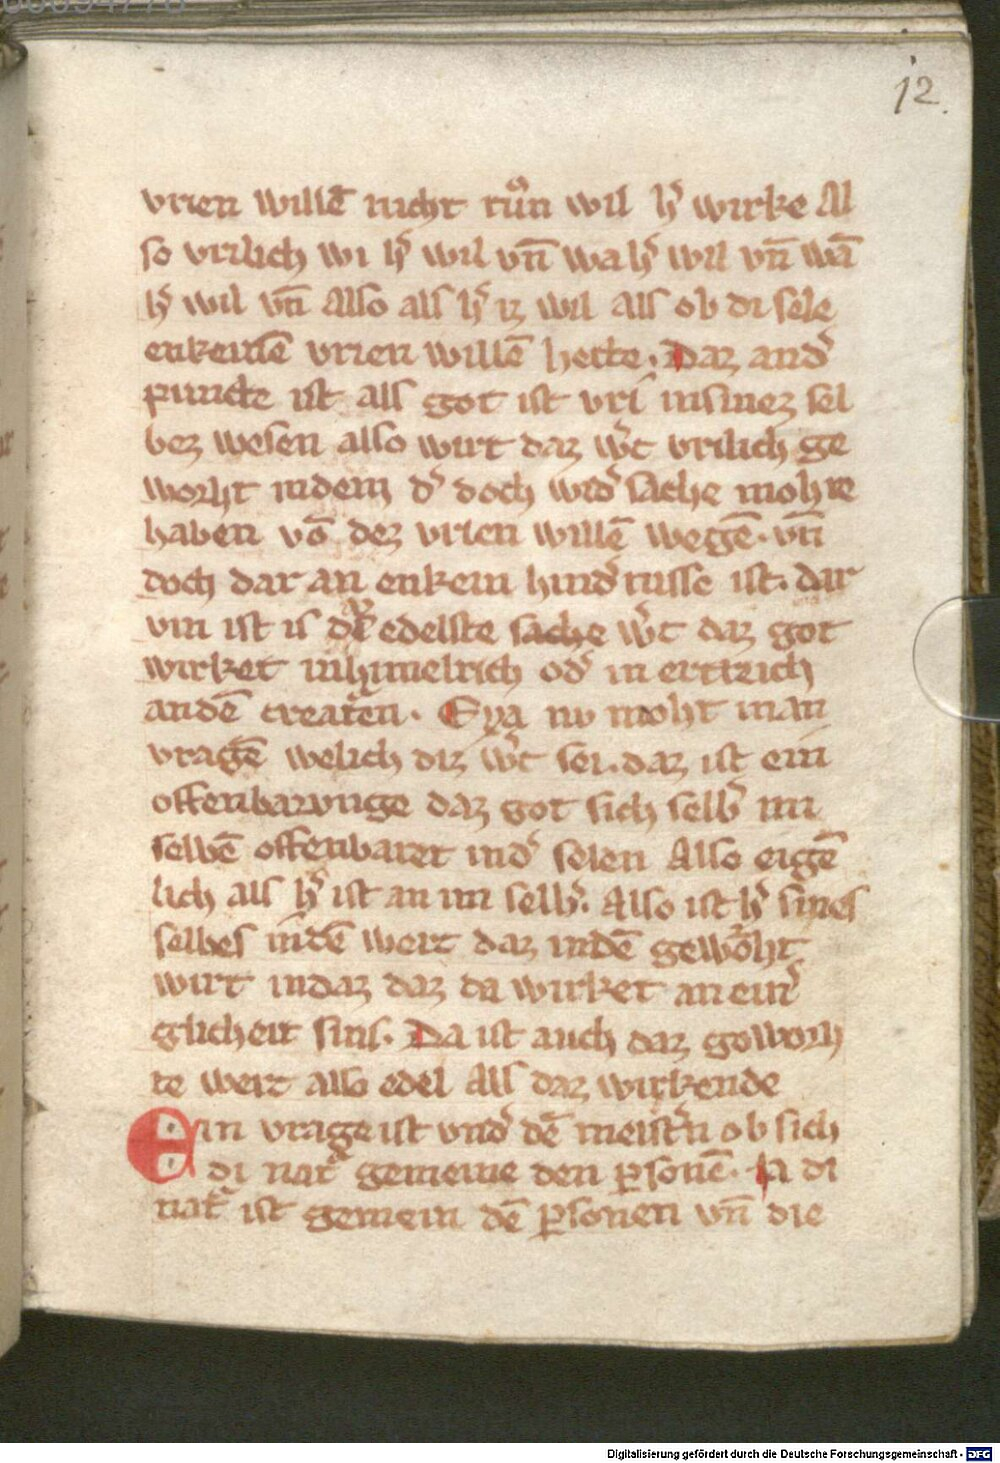 12.
vrien willē nicht tůn wil hˀ wirke Al
so vrilich wi hˀ wil vn̄ wa hˀ wil vn̄ wā
hˀ wil vn̄ Also als hˀ iz wil als ob di sele
enkeinē vrien willē hette. Daz andˀ
puncte ist als got ist vri insinez sel
bez wesen also wirt daz wˀc vrilich ge
worht indem dˀ doch wedˀ sache mohte
haben vō dez vrien willē wegē. vn̄
doch dar an enkein hindˀnisse ist. dar
vm ist is edelste sache wˀc daz got
wirket inhimelrich odˀ in ertrich
andē creatˀen. Eya nv moht man
vragē welich diz wˀc sei. daz ist ein
offenbarunge daz got sich selbˀ im
selbē offenbaret indˀ selen Also eigē
lich als hˀ ist an im selbˀ. Also ist hˀ sines
selbes indē wert daz indē geworht
wirt indaz daz da wirket an einˀ
glicheit sins. Da ist auch daz geworh
te wert also edel als daz wirkende
Ein vrage ist vndˀ dē meistˀn ob sich
di natˀ gemeine den ꝑsonē. Ja di
natˀ ist gemein dē ꝑsonen vn̄ die
Digitalisierung gefördert durch die Deutsche Forschungsgemeinschaft - DFG